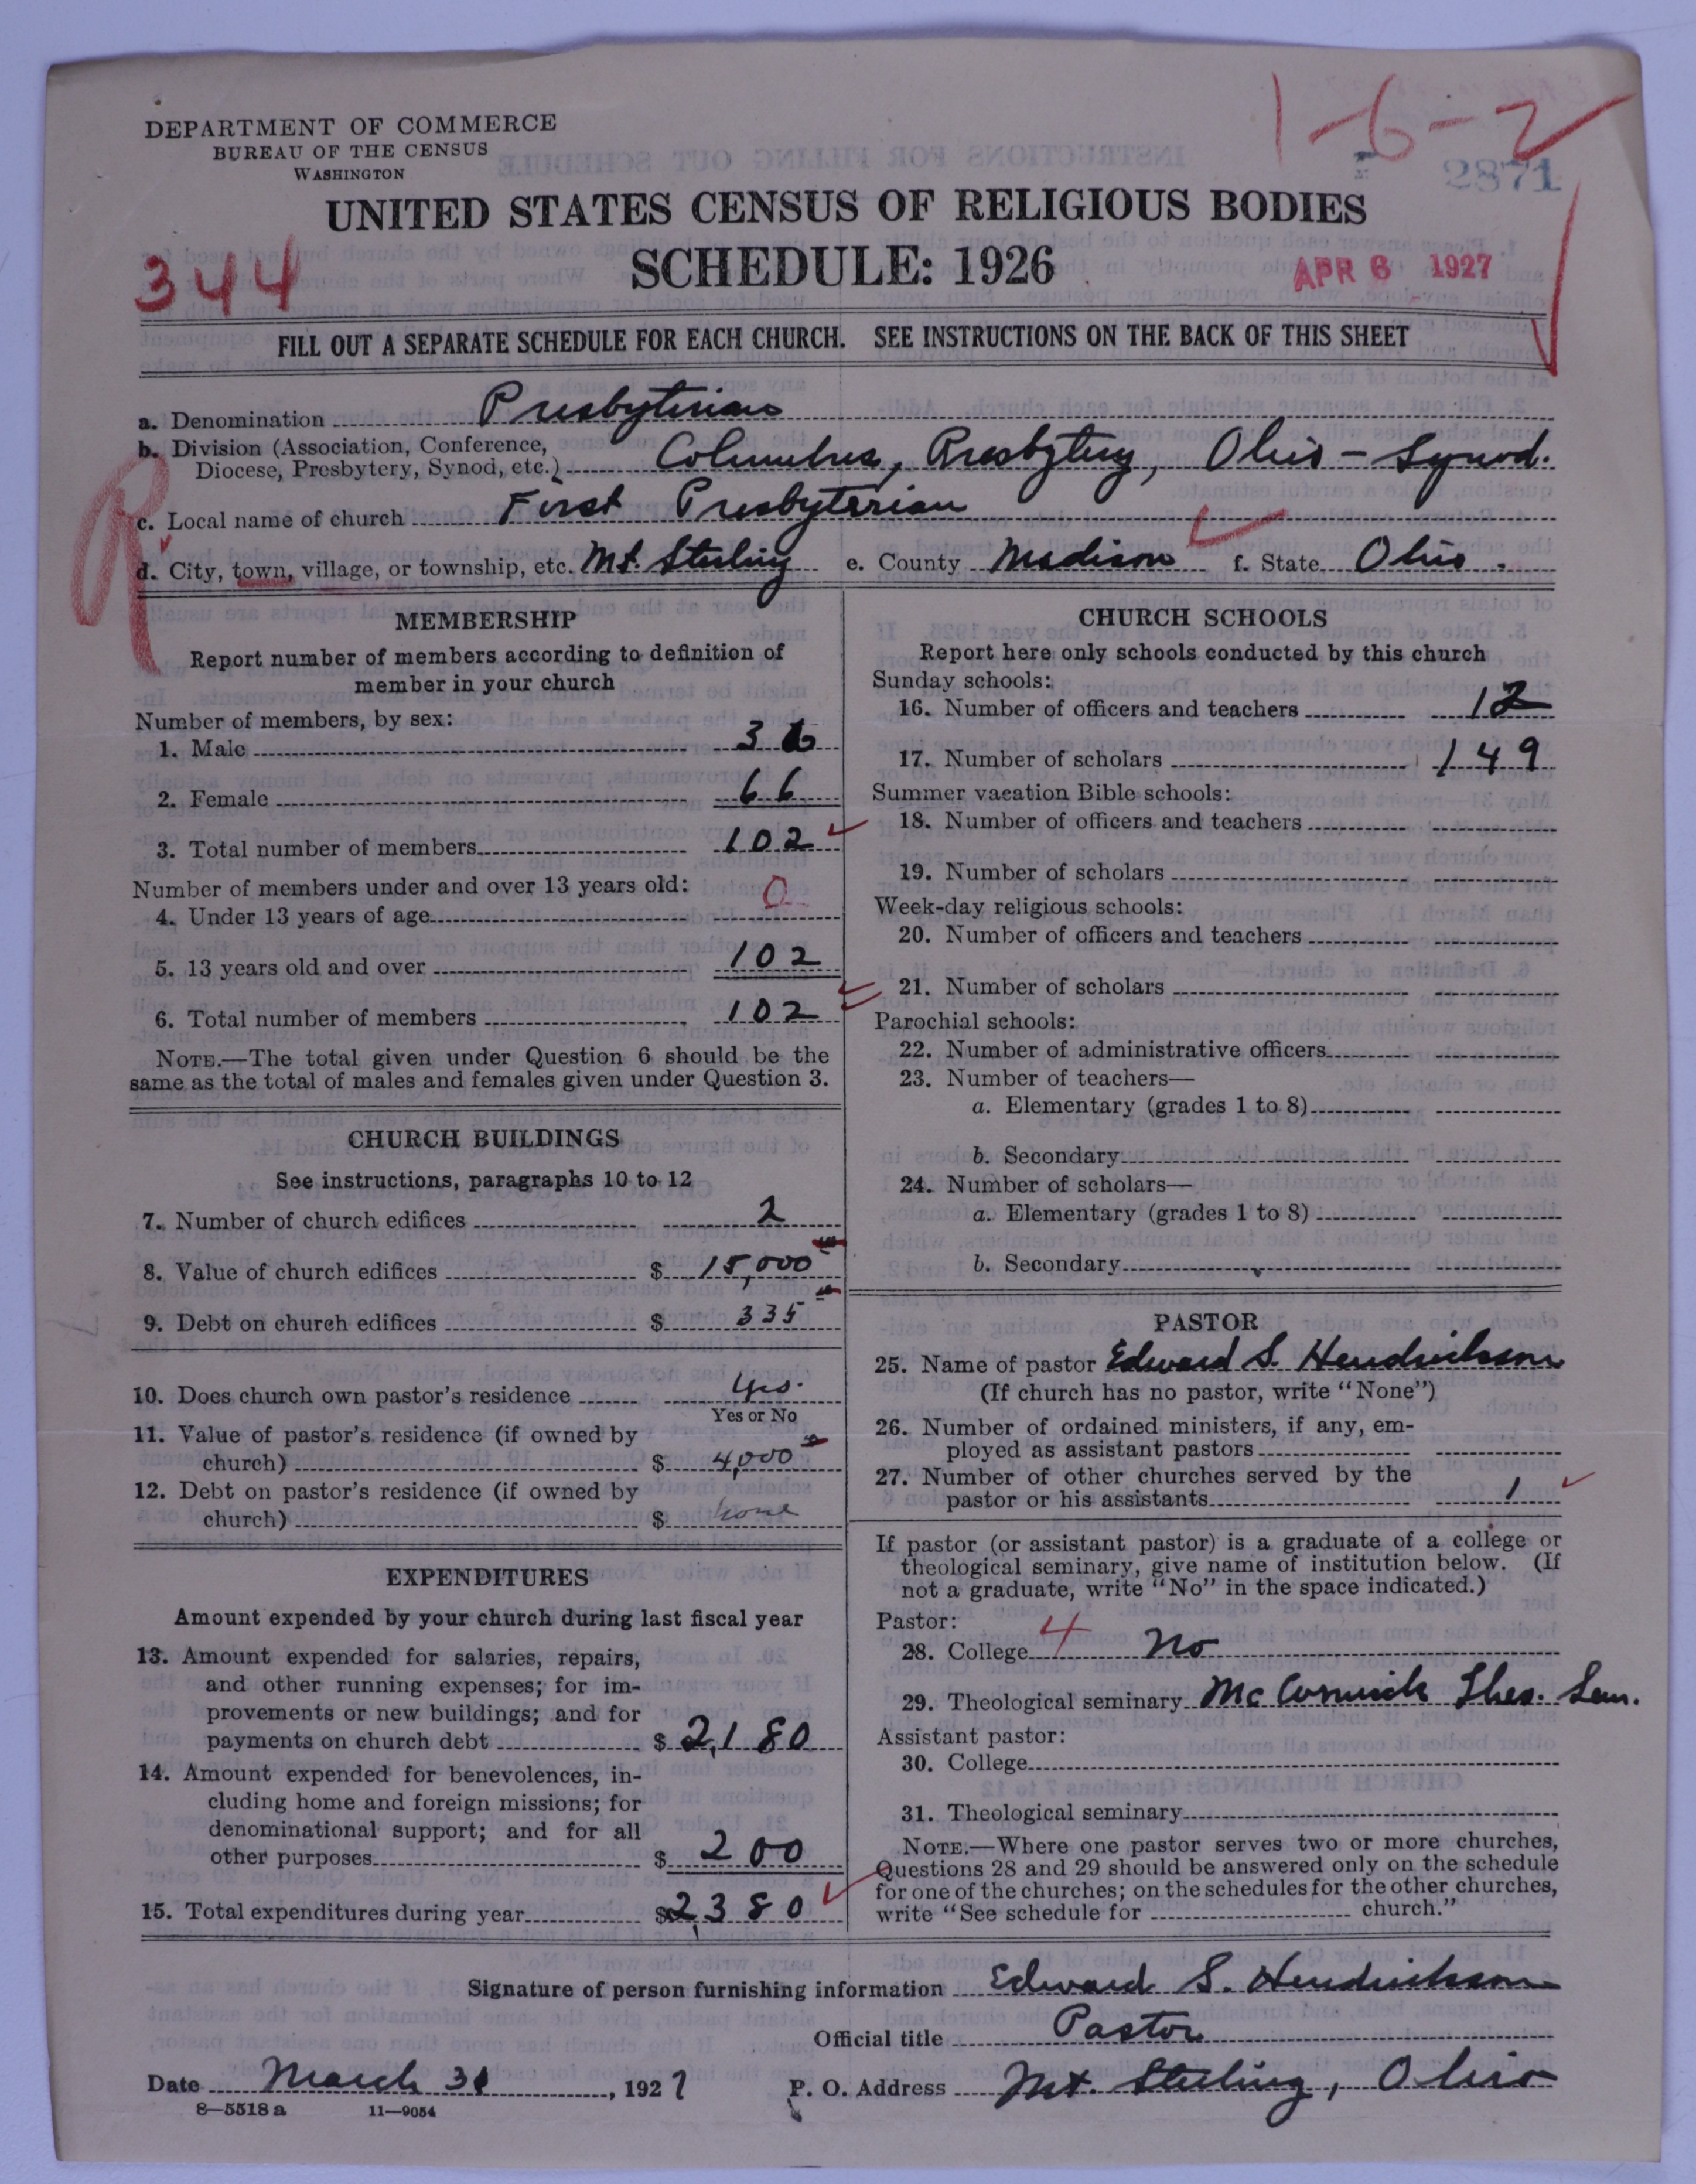 1-6-2
DEPARTMENT OF COMMERCE
BUREAU OF THE CENSUS
WASHINGTON
2871
UNITED STATES CENSUS OF RELIGIOUS BODIES
SCHEDULE: 1926
344
APR 6 1927
FILL OUT A SEPARATE SCHEDULE FOR EACH CHURCH. SEE INSTRUCTIONS ON THE BACK OF THIS SHEET
a. Denomination Presbyterian
b. Division (Association, Conference,
Diocese, Presbytery, Synod, etc.) Columbus, Presbytery, Ohio - Synod.
c. Local name of church First Presbyterian
d. City, town, village, or township, etc. Mt. Sterling e. County Madison f. State Ohio.
MEMBERSHIP
Report number of members according to definition of
member in your church
Number of members, by sex:
1. Male 36
2. Female 66
3. Total number of members 102
Number of members under and over 13 years old:
4. Under 13 years of age 0
5. 13 years old and over 102
6. Total number of members 102
NOTE.—The total given under Question 6 should be the
same as the total of males and females given under Question 3.
CHURCH BUILDINGS
See instructions, paragraphs 10 to 12
7. Number of church edifices 2
8. Value of church edifices $ 15,000
9. Debt on church edifices $ 335
10. Does church own pastor's residence Yes.
Yes or No
11. Value of pastor's residence (if owned by
church) $ 4,000
12. Debt on pastor's residence (if owned by
church) $ none
EXPENDITURES
Amount expended by your church during last fiscal year
13. Amount expended for salaries, repairs,
and other running expenses; for im-
provements or new buildings; and for
payments on church debt $ 2,180
14. Amount expended for benevolences, in-
cluding home and foreign missions; for
denominational support; and for all
other purposes $ 200
15. Total expenditures during year $2,380
CHURCH SCHOOLS
Report here only schools conducted by this church
Sunday schools:
16. Number of officers and teachers 12
17. Number of scholars 149
Summer vacation Bible schools:
18. Number of officers and teachers
19. Number of scholars
Week-day religious schools:
20. Number of officers and teachers
21. Number of scholars
Parochial schools:
22. Number of administrative officers
23. Number of teachers—
a. Elementary (grades 1 to 8)
b. Secondary
24. Number of scholars—
a. Elementary (grades 1 to 8)
b. Secondary
PASTOR
25. Name of pastor Edward S. Hendrickson
(If church has no pastor, write "None")
26. Number of ordained ministers, if any, em-
ployed as assistant pastors
27. Number of other churches served by the
pastor or his assistants 1
If pastor (or assistant pastor) is a graduate of a college or
theological seminary, give name of institution below. (If
not a graduate, write "No" in the space indicated.)
Pastor:
28. College 4 No
29. Theological seminary McCormick Theo. Sem.
Assistant pastor:
30. College
31. Theological seminary
NOTE.—Where one pastor serves two or more churches,
Questions 28 and 29 should be answered only on the schedule
for one of the churches; on the schedules for the other churches,
write "See schedule for church."
Signature of person furnishing information Edward S. Hendrickson
Official title Pastor
Date March 31, 1927 P. O. Address Mt. Sterling, Ohio
8—5518 a 11—9054